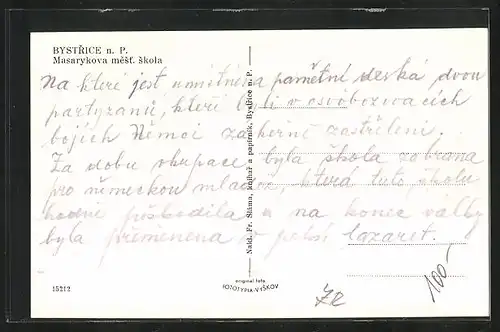 BYSTŘICE n. P.
Masarykova měšť. škola
Na které jest umístněna pamětní deska dvou
partyzanů, kteří byli v osvobozovacích
bojích Němci zákeřně zastřeleni.
Za dobu okupace byla škola zabrana
pro německou mládež, která tuto školu
hodně poškodila a na konce války
byla přeměněna v polní lazaret.
Nakl. Fr. Sláma, knihař a papírník, Bystřice n. P.
15212
original foto.
FOTOTYPIA-VYŠKOV
100